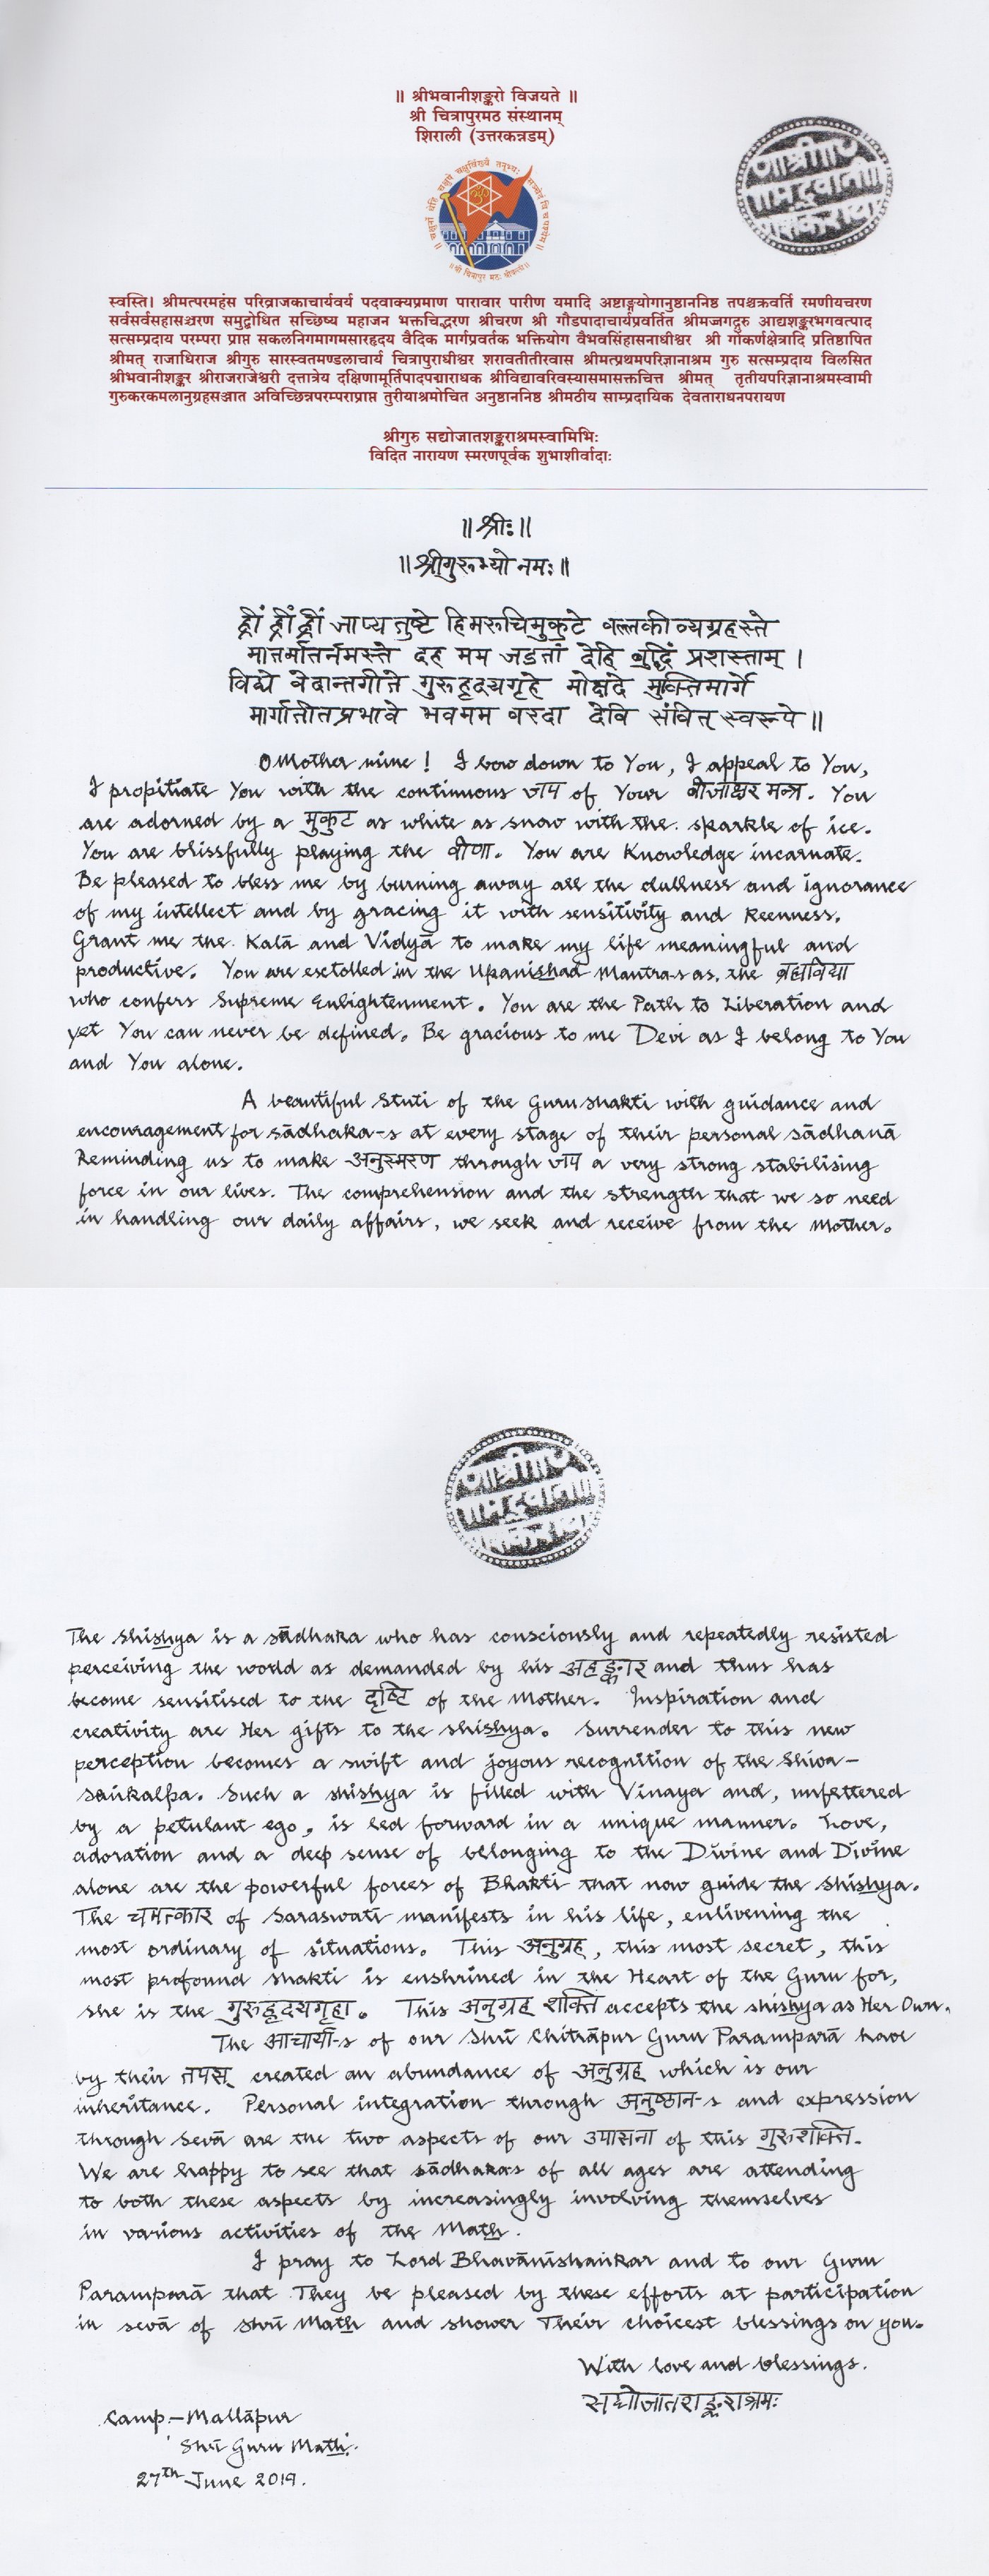 ॥ श्रीभवानीशङ्करो विजयते ॥
श्री चित्रापुरमठ संस्थानम्
शिराली (उत्तरकन्नडम्)
स्वस्ति। श्रीमत्परमहंस परिव्राजकाचार्यवर्य पदवाक्यप्रमाण पारावार पारीण यमादि अष्टाङ्गयोगानुष्ठाननिष्ठ तपश्चक्रवर्ति रमणीयचरण
सर्वसर्वसहासञ्चरण समुद्बोधित सच्छिष्य महाजन भक्तचिद्भरण श्रीचरण श्री गौडपादाचार्यप्रवर्तित श्रीमज्जगद्गुरु आद्यशङ्करभगवत्पाद
सत्सम्प्रदाय परम्परा प्राप्त सकलनिगमागमसारहृदय वैदिक मार्गप्रवर्तक भक्तियोग वैभवसिंहासनाधीश्वर श्री गोकर्णक्षेत्रादि प्रतिष्ठापित
श्रीमत् राजाधिराज श्रीगुरु सारस्वतमण्डलाचार्य चित्रापुराधीश्वर शरावतीतीरवास श्रीमत्प्रथमपरिज्ञानाश्रम गुरु सत्सम्प्रदाय विलसित
श्रीभवानीशङ्कर श्रीराजराजेश्वरी दत्तात्रेय दक्षिणामूर्तिपादपद्माराधक श्रीविद्यावरिवस्यासमासक्तचित्त श्रीमत् तृतीयपरिज्ञानाश्रमस्वामी
गुरुकरकमलानुग्रहसञ्जात अविच्छिन्नपरम्पराप्राप्त तुरीयाश्रमोचित अनुष्ठाननिष्ठ श्रीमठीय साम्प्रदायिक देवताराधनपरायण
श्रीगुरु सद्योजातशङ्कराश्रमस्वामिभिः
विदित नारायण स्मरणपूर्वक शुभाशीर्वादाः
॥ श्रीः ॥
॥ श्रीगुरुभ्यो नमः ॥
ह्रीं ह्रीं ह्रीं जाप्य तुष्टे हिमरुचिमुकुटे वल्लकी व्यग्रहस्ते
मातर्मातर्नमस्ते दह मम जडतां देहि बुद्धिं प्रशस्ताम् ।
विद्ये वेदान्तगीते गुरुहृदयगृहे मोक्षदे मुक्तिमार्गे
मार्गातीतप्रभावे भवमम वरदा देवि संवित् स्वरूपे ॥
O Mother mine! I bow down to You, I appeal to You,
I propitiate You with the continuous जप of Your बीजाक्षर मन्त्र. You
are adorned by a मुकुट as white as snow with the sparkle of ice.
You are blissfully playing the वीणा. You are Knowledge incarnate.
Be pleased to bless me by burning away all the dullness and ignorance
of my intellect and by gracing it with sensitivity and Keenness.
Grant me the Kalā and Vidyā to make my life meaningful and
productive. You are extolled in the Upanishad Mantra-s as, the ब्रह्मविद्या
who confers Supreme Enlightenment. You are the Path to Liberation and
yet You can never be defined. Be gracious to me Devi as I belong to You
and You alone.
A beautiful Stuti of the Gurushakti with guidance and
encouragement for sādhaka-s at every stage of their personal sādhanā
Reminding us to make अनुस्मरण through जप a very strong stabilising
force in our lives. The comprehension and the strength that we so need
in handling our daily affairs, we seek and receive from the Mother.
The shishya is a sādhaka who has consciously and repeatedly resisted
perceiving the world as demanded by his अहङ्कार and thus has
become sensitised to the दृष्टि of the Mother. Inspiration and
creativity are Her gifts to the shishya. Surrender to this new
perception becomes a swift and joyous recognition of the Shiva-
saṅkalpa. Such a shishya is filled with Vinaya and, unfettered
by a petulant ego, is led forward in a unique manner. Love,
adoration and a deep sense of belonging to the Divine and Divine
alone are the powerful forces of Bhakti that now guide the shishya.
The चमत्कार of Saraswatī manifests in his life, enlivening the
most ordinary of situations. This अनुग्रह, this most secret, this
most profound shakti is enshrined in the Heart of the Guru for,
she is the गुरुहृदयगृहा. This अनुग्रह शक्ति accepts the shishya as Her Own.
The आचार्य-s of our Shrī Chitrāpur Guru Paramparā have
by their तपस् created an abundance of अनुग्रह which is our
inheritance. Personal integration through अनुष्ठान-s and expression
through Sevā are the two aspects of our उपासना of this गुरुशक्ति.
We are happy to see that sādhakas of all ages are attending
to both these aspects by increasingly involving themselves
in various activities of the Math.
I pray to Lord Bhavānīshaṅkar and to our Guru
Paramparā that They be pleased by these efforts at participation
in sevā of Shrī Math and shower Their choicest blessings on you.
With love and blessings.
सद्योजातशङ्कराश्रमः
Camp:- Mallāpur
Shrī Guru Math.
27th June 2019.